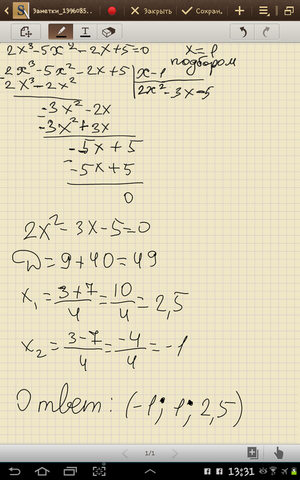 Заметки_1396085...
Закрыть
Сохран.
2x³-5x²-2x+5=0
x=1
подбором
2x³-5x²-2x+5 | x-1
2x³-2x²
2x²-3x-5
-3x²-2x
-3x²+3x
-5x+5
-5x+5
0
2x²-3x-5=0
D=9+40=49
x₁=3+7/4=10/4=2,5
x₂=3-7/4=-4/4=-1
Ответ: (-1; 1; 2,5)
1/1
13:31